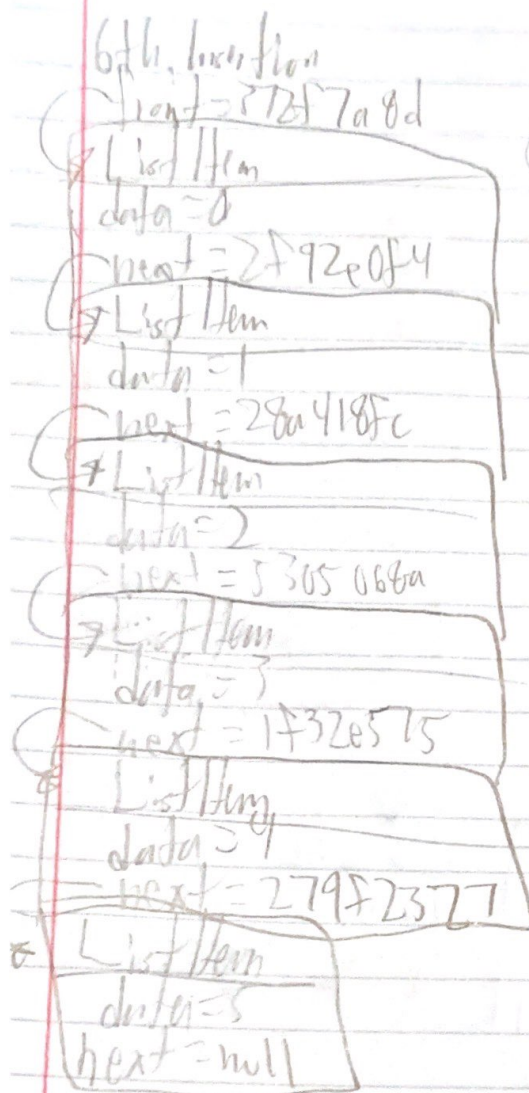 6th. Insertion
front = 372f7a8d
List Item
data = 0
next = 2f92e0f4
List Item
data = 1
next = 28a418fc
List Item
data = 2
next = 5305068a
List Item
data = 3
next = 1f32e575
List Item
data = 4
next = 279f2327
List Item
data = 5
next = null